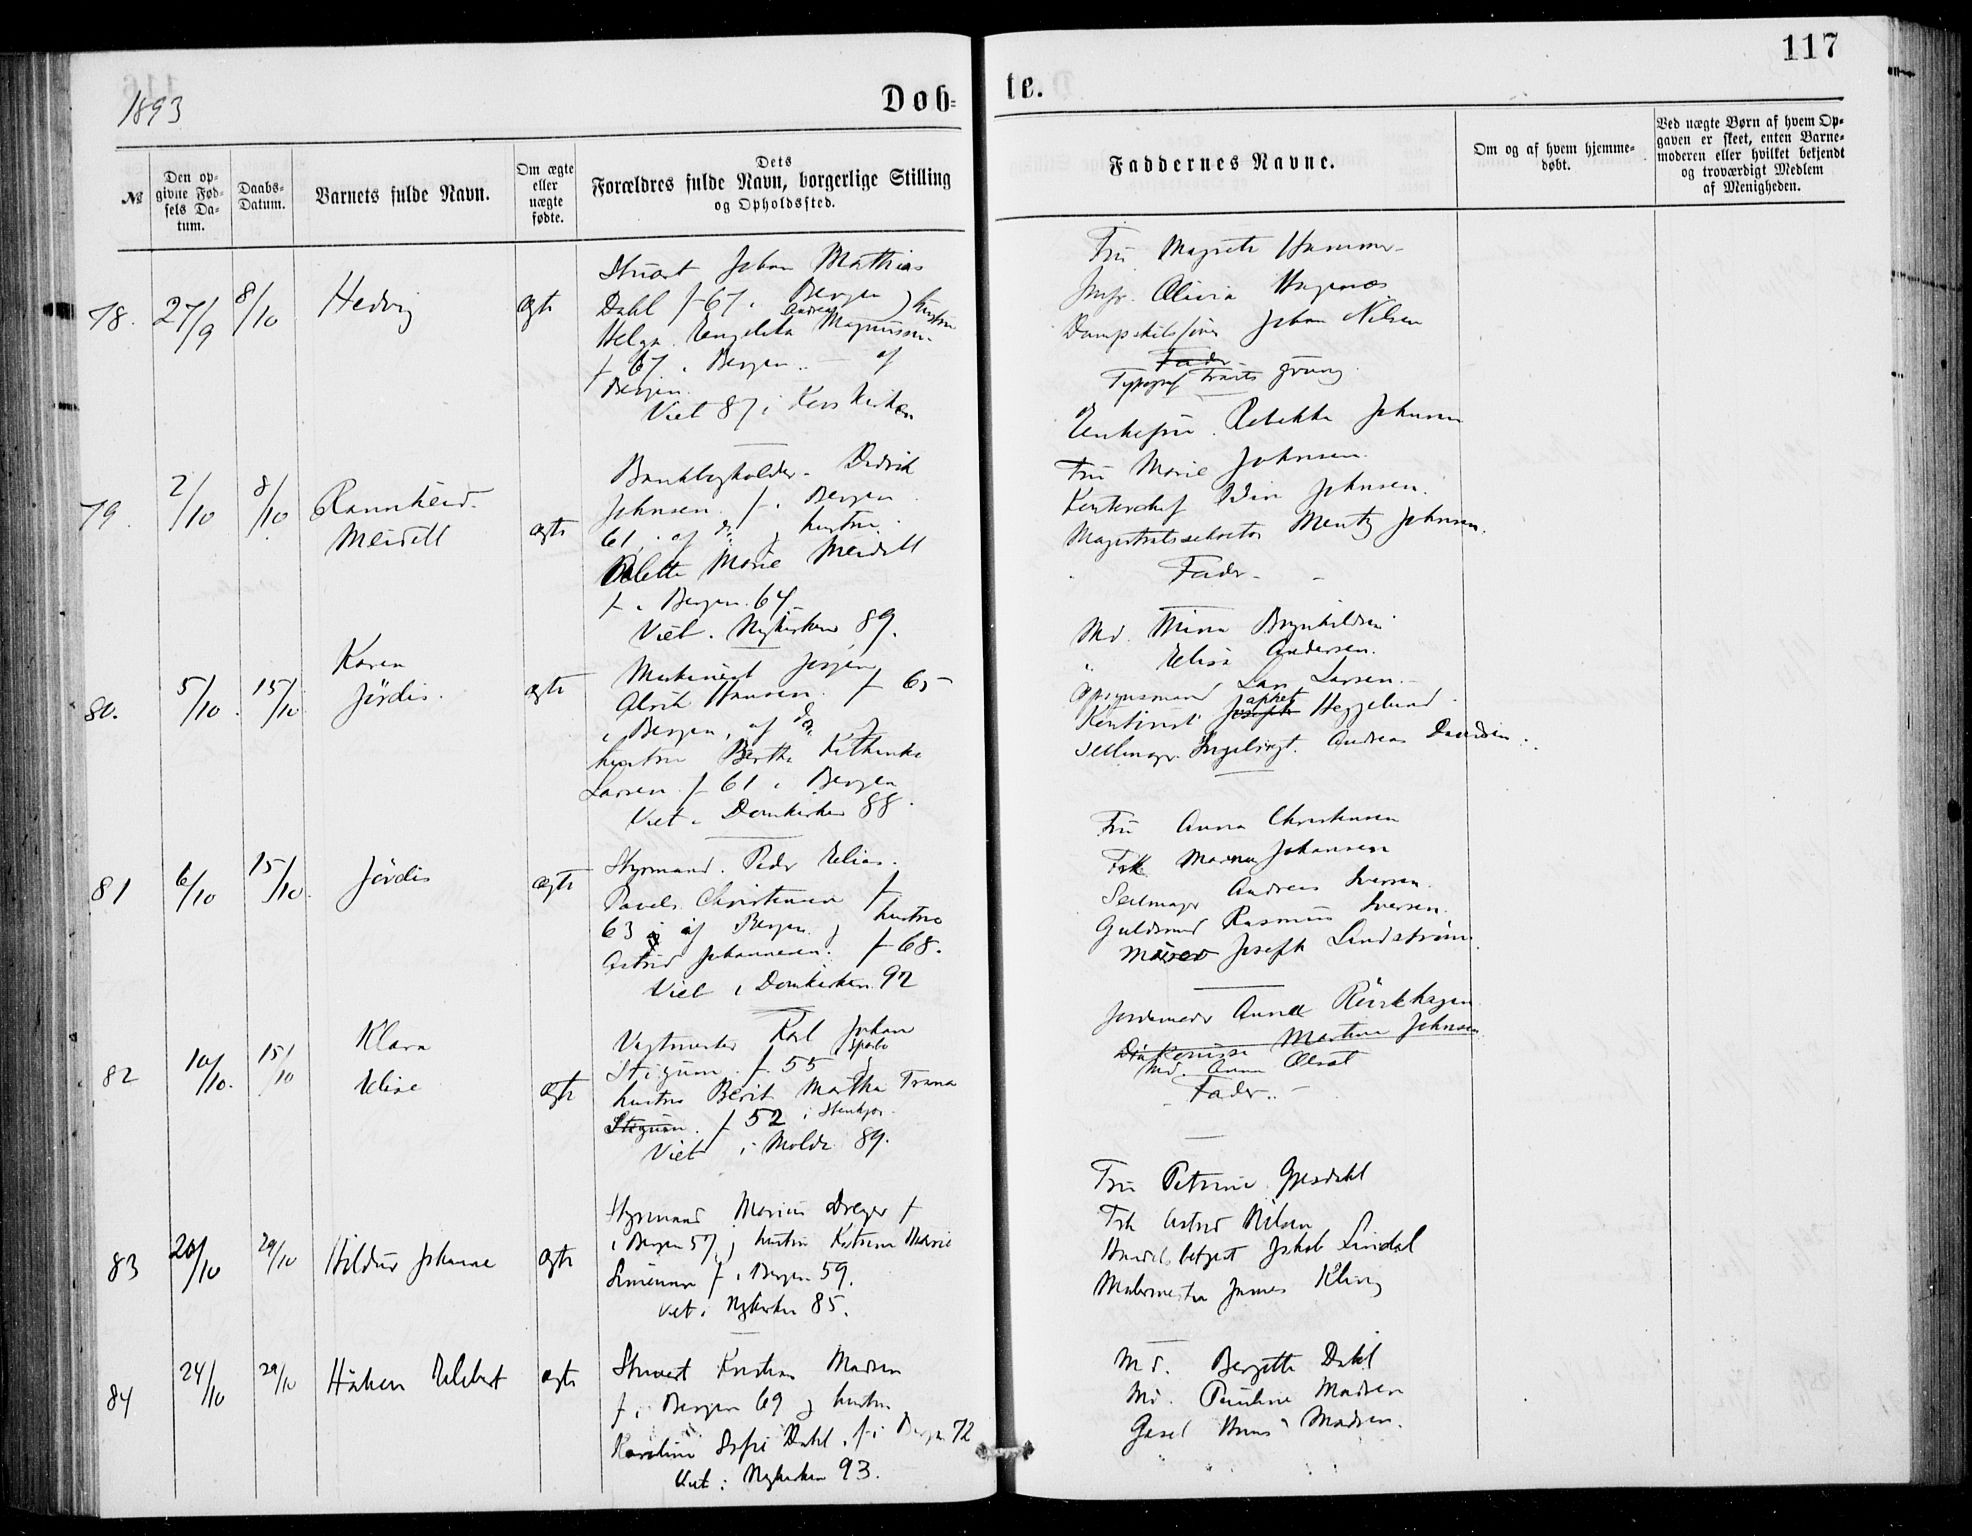 117
1893
Døb-
te.
№
Den op-
givne Fød-
sels Da-
tum.
Daabs-
Datum.
Barnets fulde Navn.
Om ægte
eller
uægte
fødte.
Dets
Forældres fulde Navn, borgerlige Stilling
og Opholdssted.
Faddernes Navne.
Om og af hvem hjemme-
døbt.
Ved uægte Børn af hvem Op-
gaven er skeet, enten Barne-
moderen eller hvilket bekjendt
og troværdigt Medlem
af Menigheden.
78. 27/9 8/10 Hedvig ægte
Stuart Johan Mathias
Dahl f 67 i Bergen j hustru
Andrea
Helga Engelika Magnussen
f 67 i Bergen. af
Bergen.
Viet 87 i Korskirken
Fru Magrete Hammer
Jmfr. Olivia
Dampskibsfører Johan Nilsen
Fader
Typograf
79. 2/10 8/10 Rannheid
Meidell ægte
Bankbogholder Didrik
Johnsen f. i Bergen
61, af do j hustru
Marie Meidell
f i Bergen 64
Viet i Nykirken 89.
Enkefru Rebekka Johnsen
Fru Marie Johnsen
Kontorchef Johnsen.
Magistratssekretær Mentz Johnsen.
Fader
80. 5/10 15/10 Karen
Jördis. ægte
Maskinist Jørgen
Ulrik Hansen f 65
i Bergen, af do j
hustru Berthe Kathinka
Larsen f 61 i Bergen
Viet i Domkirken 88.
Md. Mina Brynhildsen
" Elisa Andersen.
Opsynsmand Lars Larsen.
Kontorist Joseph Heggelund
Seilmager Ingebrigt Andreas Davidsen.
81 6/10 15/10 Jördis ægte
Styrmand Peder Elias
Pavels Christensen f
63 i af Bergen j hustru
Astrid Johannesen f 68.
Viet i Domkirken 92
Fru Anna Christensen
Frk Marna Johansen
Seilmager Andreas Iversen.
Guldsmed Rasmus Iversen.
Murer Joseph Lindstrøm.
82 10/10. 15/10 Klara
Elise ægte
Vagtmester Karl Johan
Stigum f. 55 i Sparbo j
hustru Berit Martha Trana
Stigum. f 52 i Stenkjær
Viet i Molde 89.
Jordemoder Anne
Diakonisse Martine Johnsen
Md. Anna
Fader
83 20/10 29/10 Hildur Johanne ægte
Styrmand Marius Dreyer f
i Bergen 57 j hustru Katrine Marie
Simensen f i Bergen 59.
Viet i Nykirken 85.
Fru Petrine Gjesdahl
Frk Astrid Nilsen
Handelsbetjent Jakob Lindal
Malermester James Kling
84 24/10 29/10 Håkon Elebert ægte
Stuert Kristian Madsen
f i Bergen 69 j hustru
Karoline Sofie Dahl, f i Bergen 72
Viet i Nykirken 93.
Md. Bergitte Dahl
Md. Pauline Madsen
Gasel Madsen.